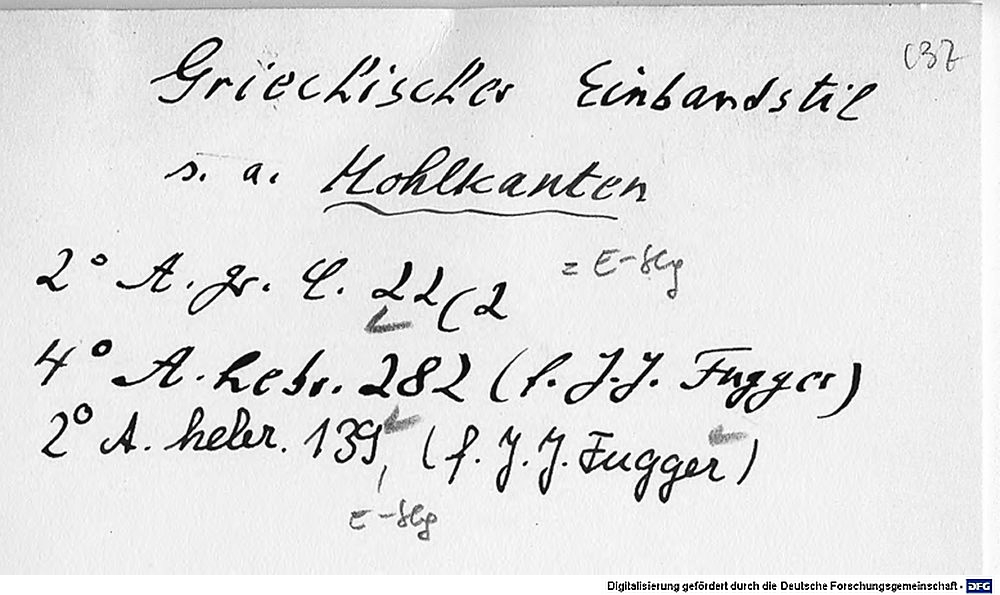 (37
Griechischer Einbandstil
s. a. Hohlkanten
2° A. gr. C. 22(2
4° A. hebr. 282 (f. J. J. Fugger)
2° A. hebr. 139 (f. J. J. Fugger)
Digitalisierung gefördert durch die Deutsche Forschungsgemeinschaft - DFG